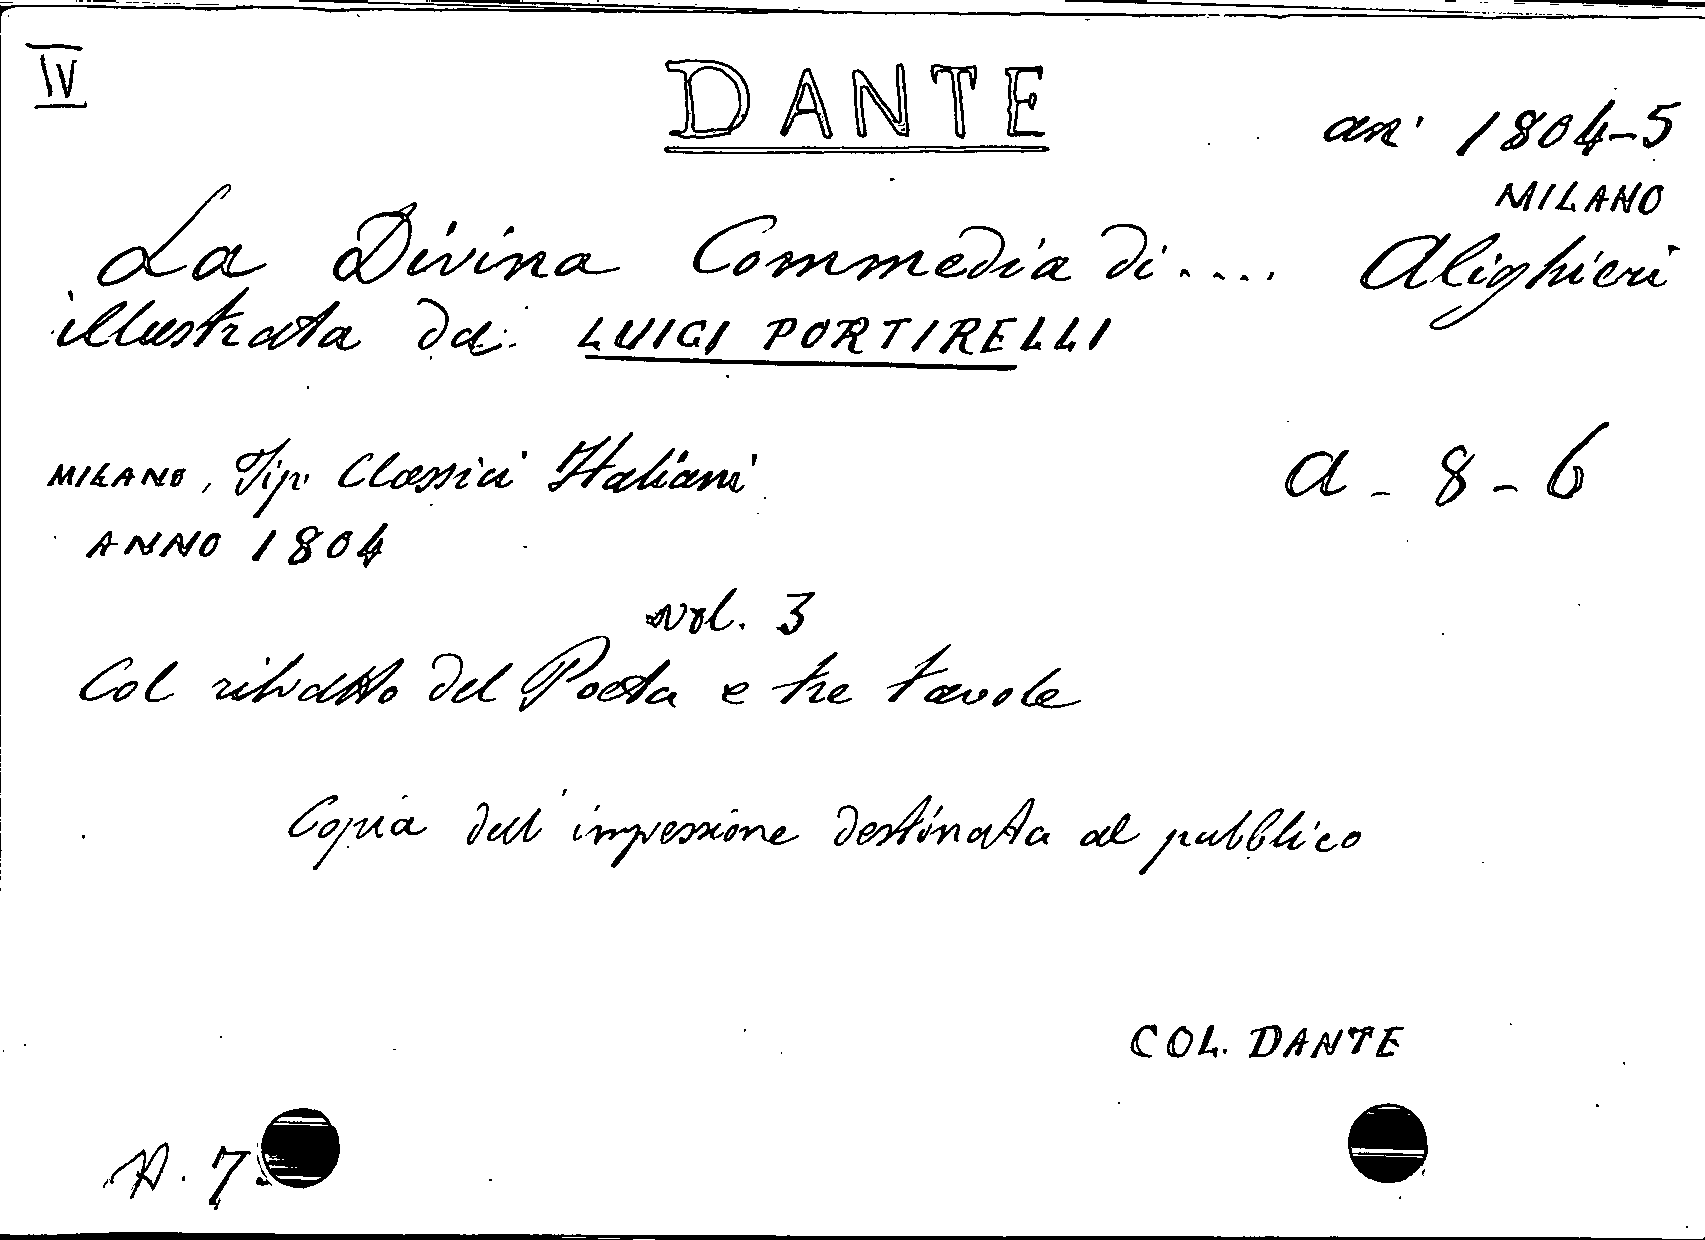 IV
DANTE
an' 1804-5
MILANO
La Divina Commedia di.... Alighieri
illustrata da: LUIGI PORTIRELLI
MILANO, Tip. Classici Italiani
a - 8 - 6
ANNO 1804
vol. 3
Col ritratto del Poeta e tre tavole
Copia dell'impressione destinata al pubblico
COL. DANTE
A. 7.